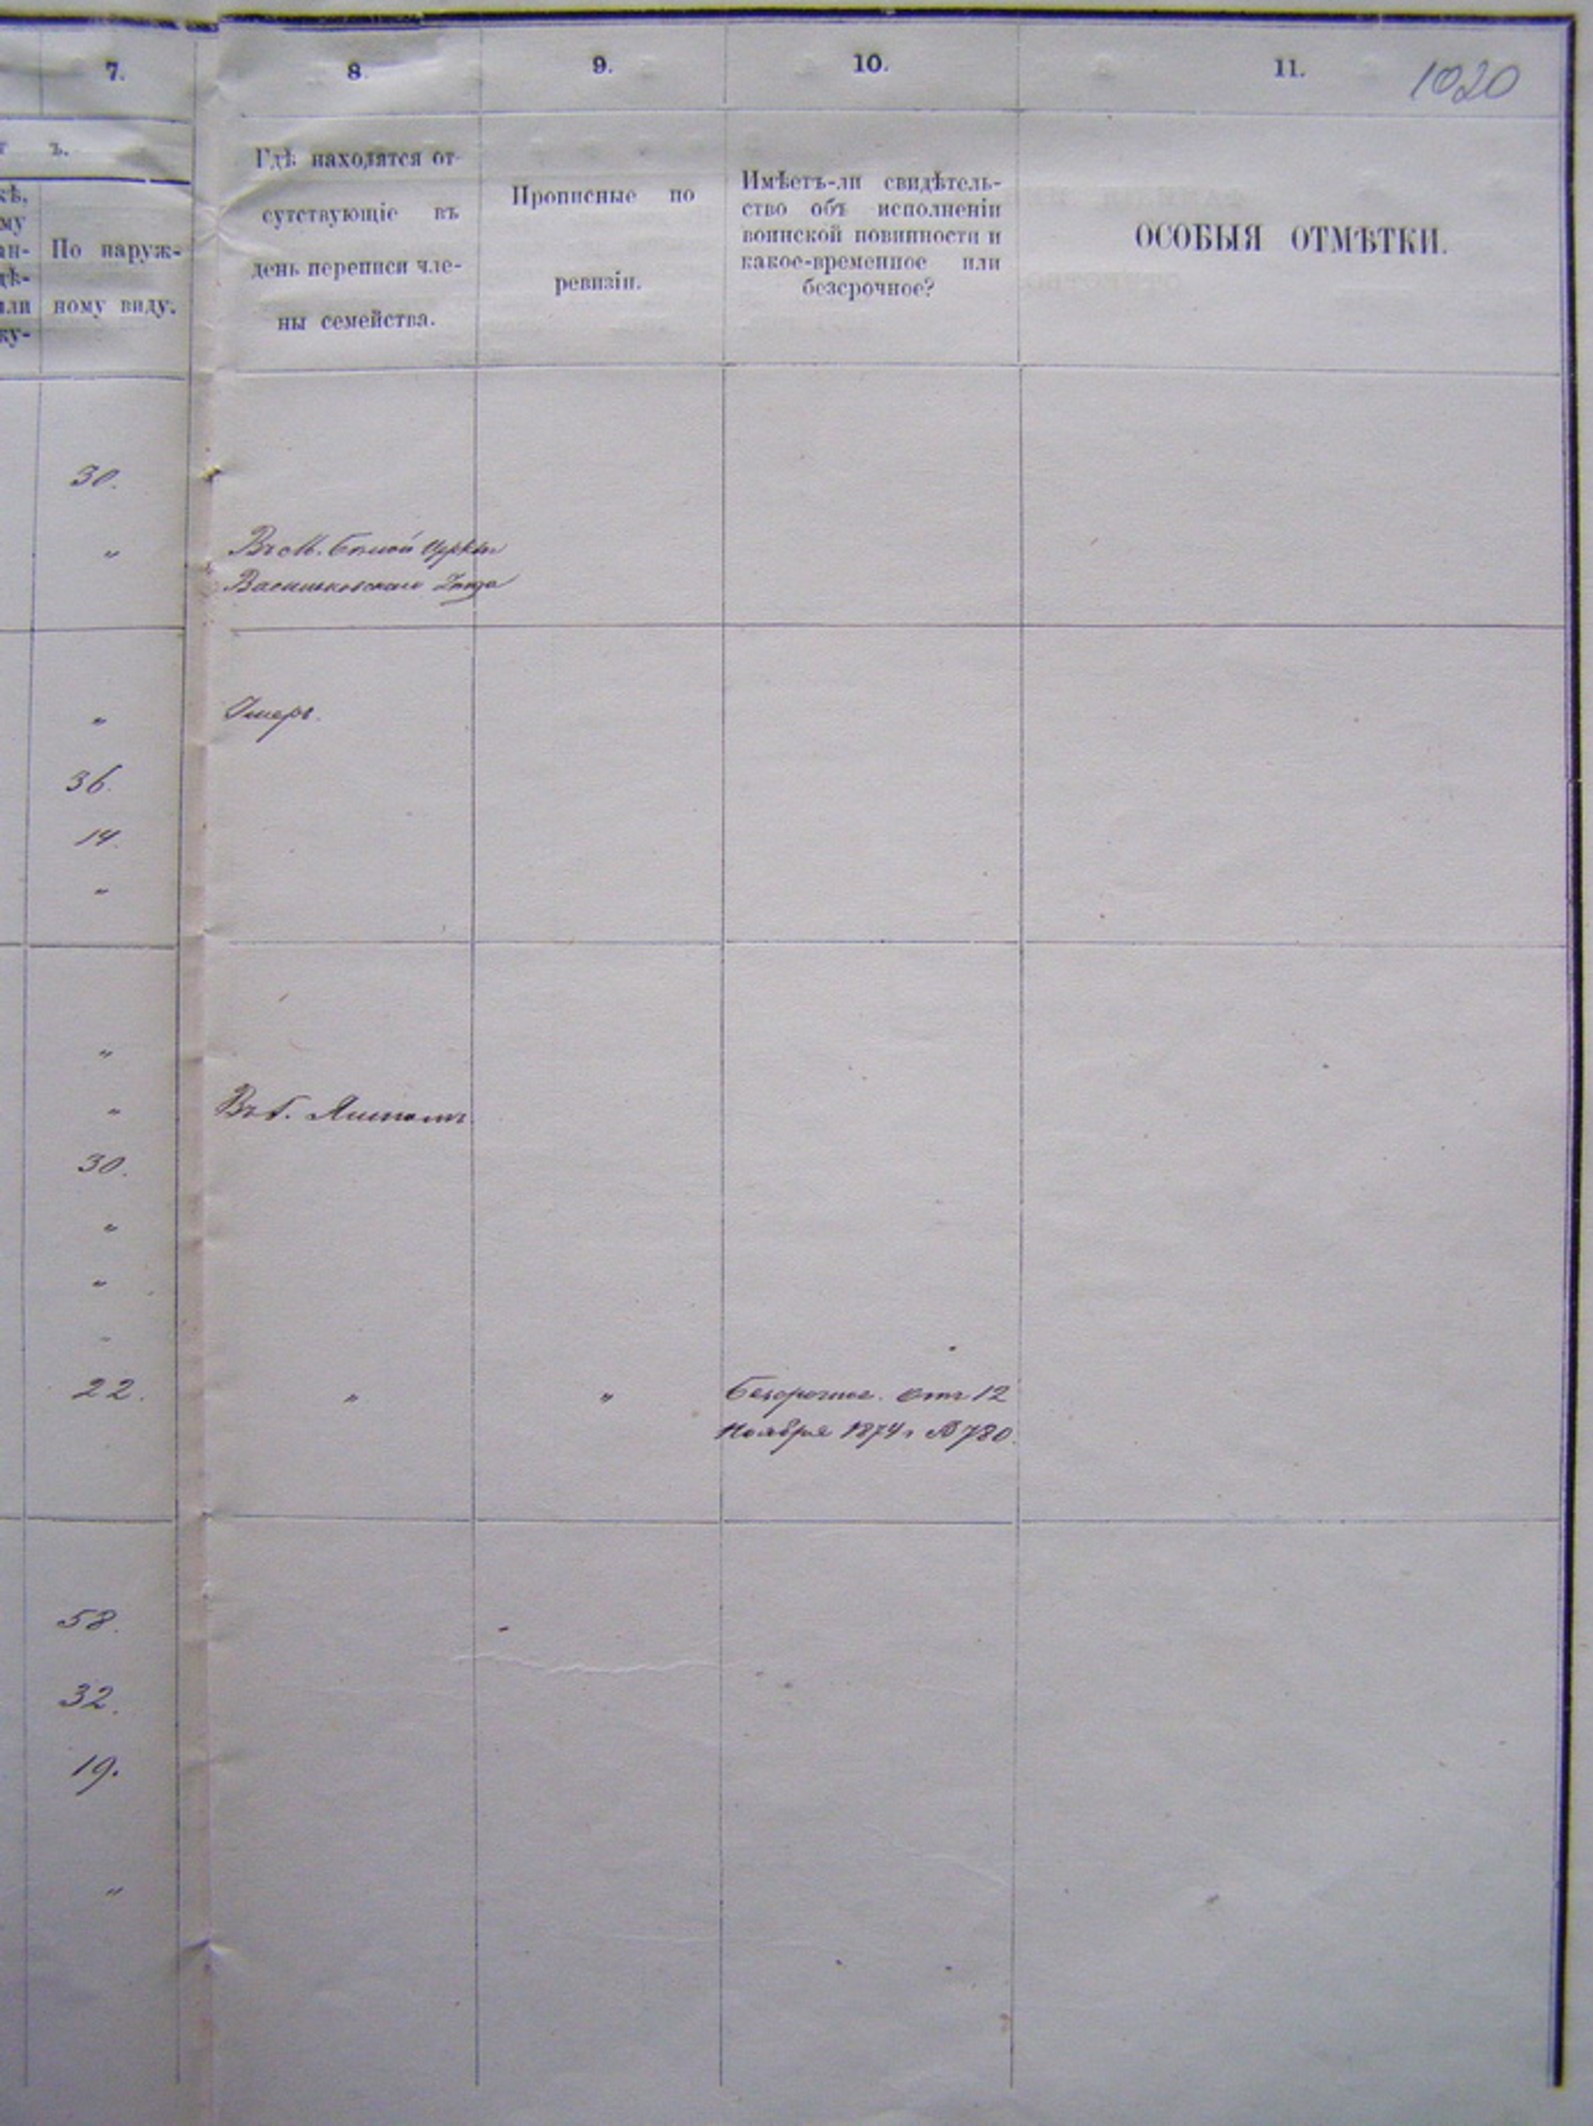 7.
8
9.
10.
11.
1020
ъ.
По наруж-
ному виду.
Гдѣ находятся от-
сутствующіе въ
день переписи чле-
ны семейства.
Прописные по
ревизіи.
Имѣетъ-ли свидѣтель-
ство объ исполненіи
воинской повинности и
какое-временное или
безсрочное?
ОСОБЫЯ ОТМѢТКИ.
кѣ,
му
ан-
дѣ-
или
ку-
30.
„
Въ М. Бѣлой Церкви
Васильковскаго Уѣзда
„
Умеръ.
36.
14.
„
„
„
Въ г.
30.
„
„
22.
„
„
Безсрочное. отъ 12
Ноября 1874 г № 780.
58.
32.
19.
„